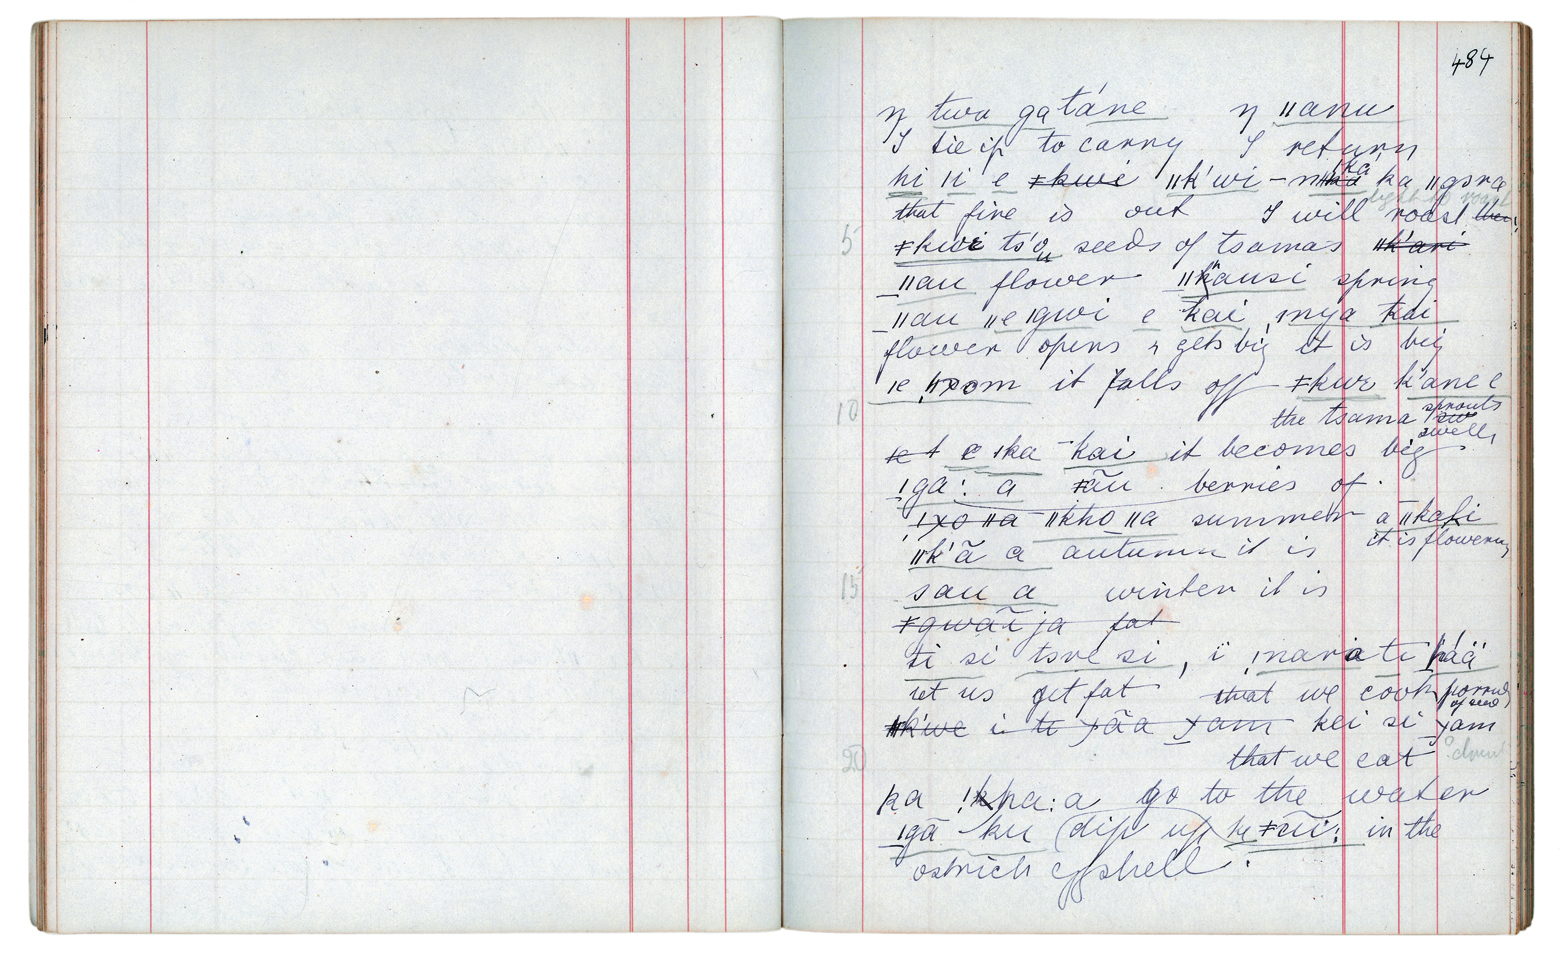 484
ŋ twa ga táne ŋ ǁanu
I tie it to carry I return
hi ǀi e ǂkwé ǁk'wi-n ǃka ka ǁgɔra
light to roast
that fire is out I will roast then
5
ǂkwé ts'ɔu seeds of tsamas ǁk'ari
ǁau flower ǁkausi spring
ǁau ǁe ǀgwi e kai, mya kai
flower opens & gets big it is big
ǀe ǁxom it falls off ǂkwe k'ane e
10
the tsama sprouts
swells
e ǀka kai it becomes big
ǃga: a ǂãu berries of
ǃxo ǁa ǁkho ǁa summer a ǁkaɦi
it is flowering
ǁk'ã a autumn it is
15
sau a winter it is
ǂgwãi ja fat
ti si tsve si, ï ǃnara ti ǁáä
let us get fat that we cook porridge
of seed
ǁk'we i ti χãa χam kei si χam
20
that we eat
ka ǃkha: a go to the water
ǃgã ku (dip up) ke ǂũi: in the
ostrich eggshell.